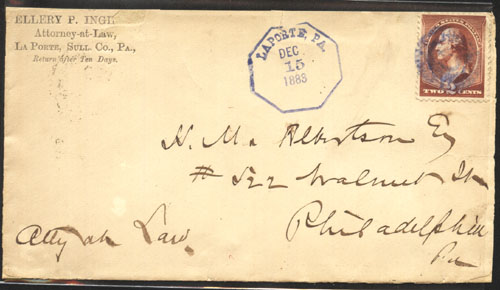 ELLERY P. INGH
Attorney-at-Law,
LA PORTE, SULL. CO., PA.,
Return After Ten Days.
LAPORTE, PA.
DEC
15
1883
TWO CENTS
N. M. Albertson Esq
# 522 Walnut St
Philadelphia
Pa
Atty at Law